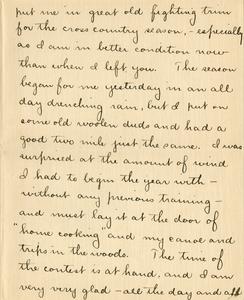 put me in great old fighting trim
for the cross country season, - especially
as I am in better condition now
than when I left you. The season
began for me yesterday in an all
day drenching rain, but I put on
some old woolen duds and had a
good two mile just the same. I was
surprised at the amount of wind
I had to begin the year with -
without any previous training -
and must lay it at the door of
"home cooking and my canoe and
trips in the woods. The time of
the contest is at hand, and I am
very very glad - all the day and all